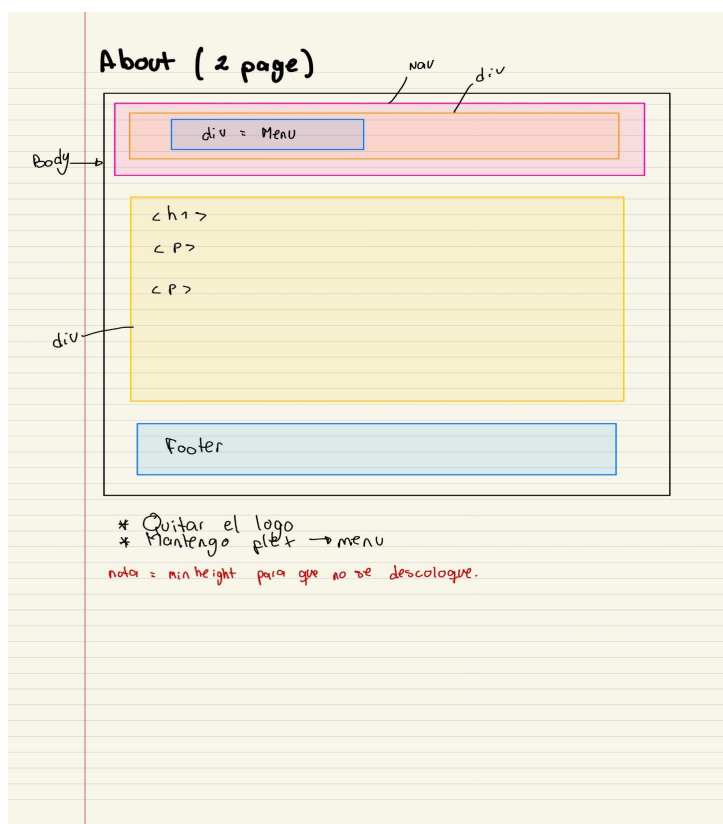 About (2 page)
Nav
div
div = Menu
Body
<h1>
<p>
<p>
div
Footer
* Quitar el logo
* Mantengo → menu
nota = min height para que no se descoloque.